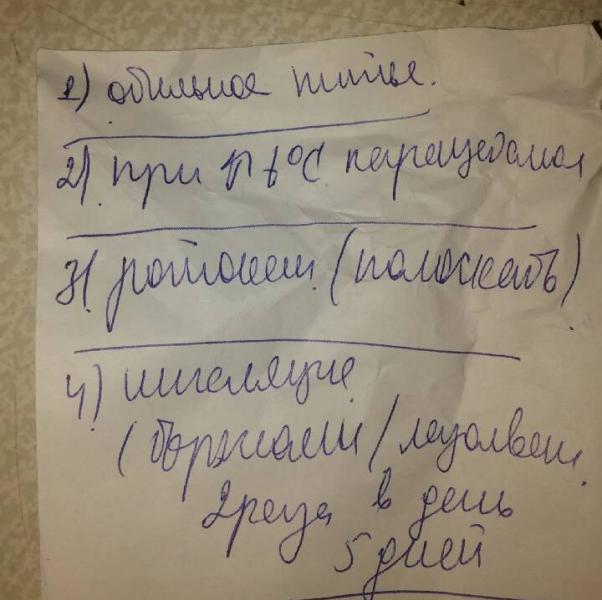 1) обильное питье.
2) при ↑ t°C парацетамол
3) ротокан (полоскать)
4) ингаляции
(боржоми / лазолван
2 раза в день
5 дней